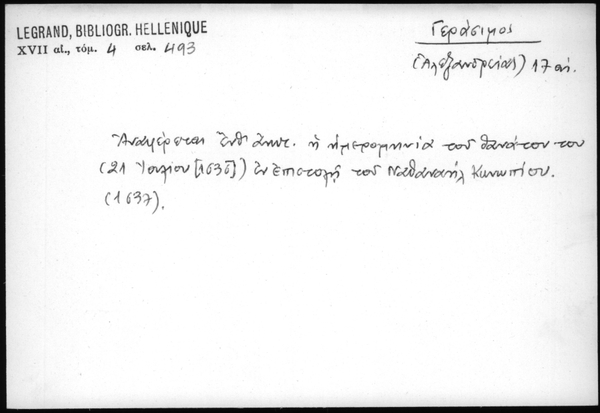 LEGRAND, BIBLIOGR. HELLENIQUE
XVII αἰ., τόμ. 4 σελ. 493
Γεράσιμος
(Ἀλεξανδρείας) 17 αἰ.
Ἀναφέρεται ἡ ἡμερομηνία τοῦ θανάτου του
(21 Ἰουλίου [1636]) ἐν ἐπιστολῇ τοῦ Ναθαναήλ Κωνωπίου.
(1637).